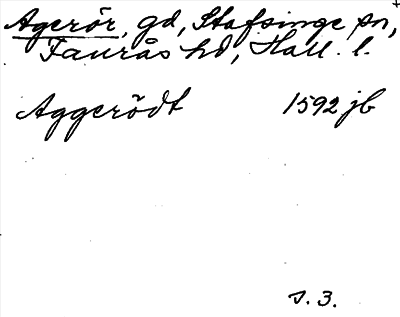 Agerör, gd, Stafsinge sn,
Faurås hd, Hall. l.
Aggerödt 1592 jb
s. 3.